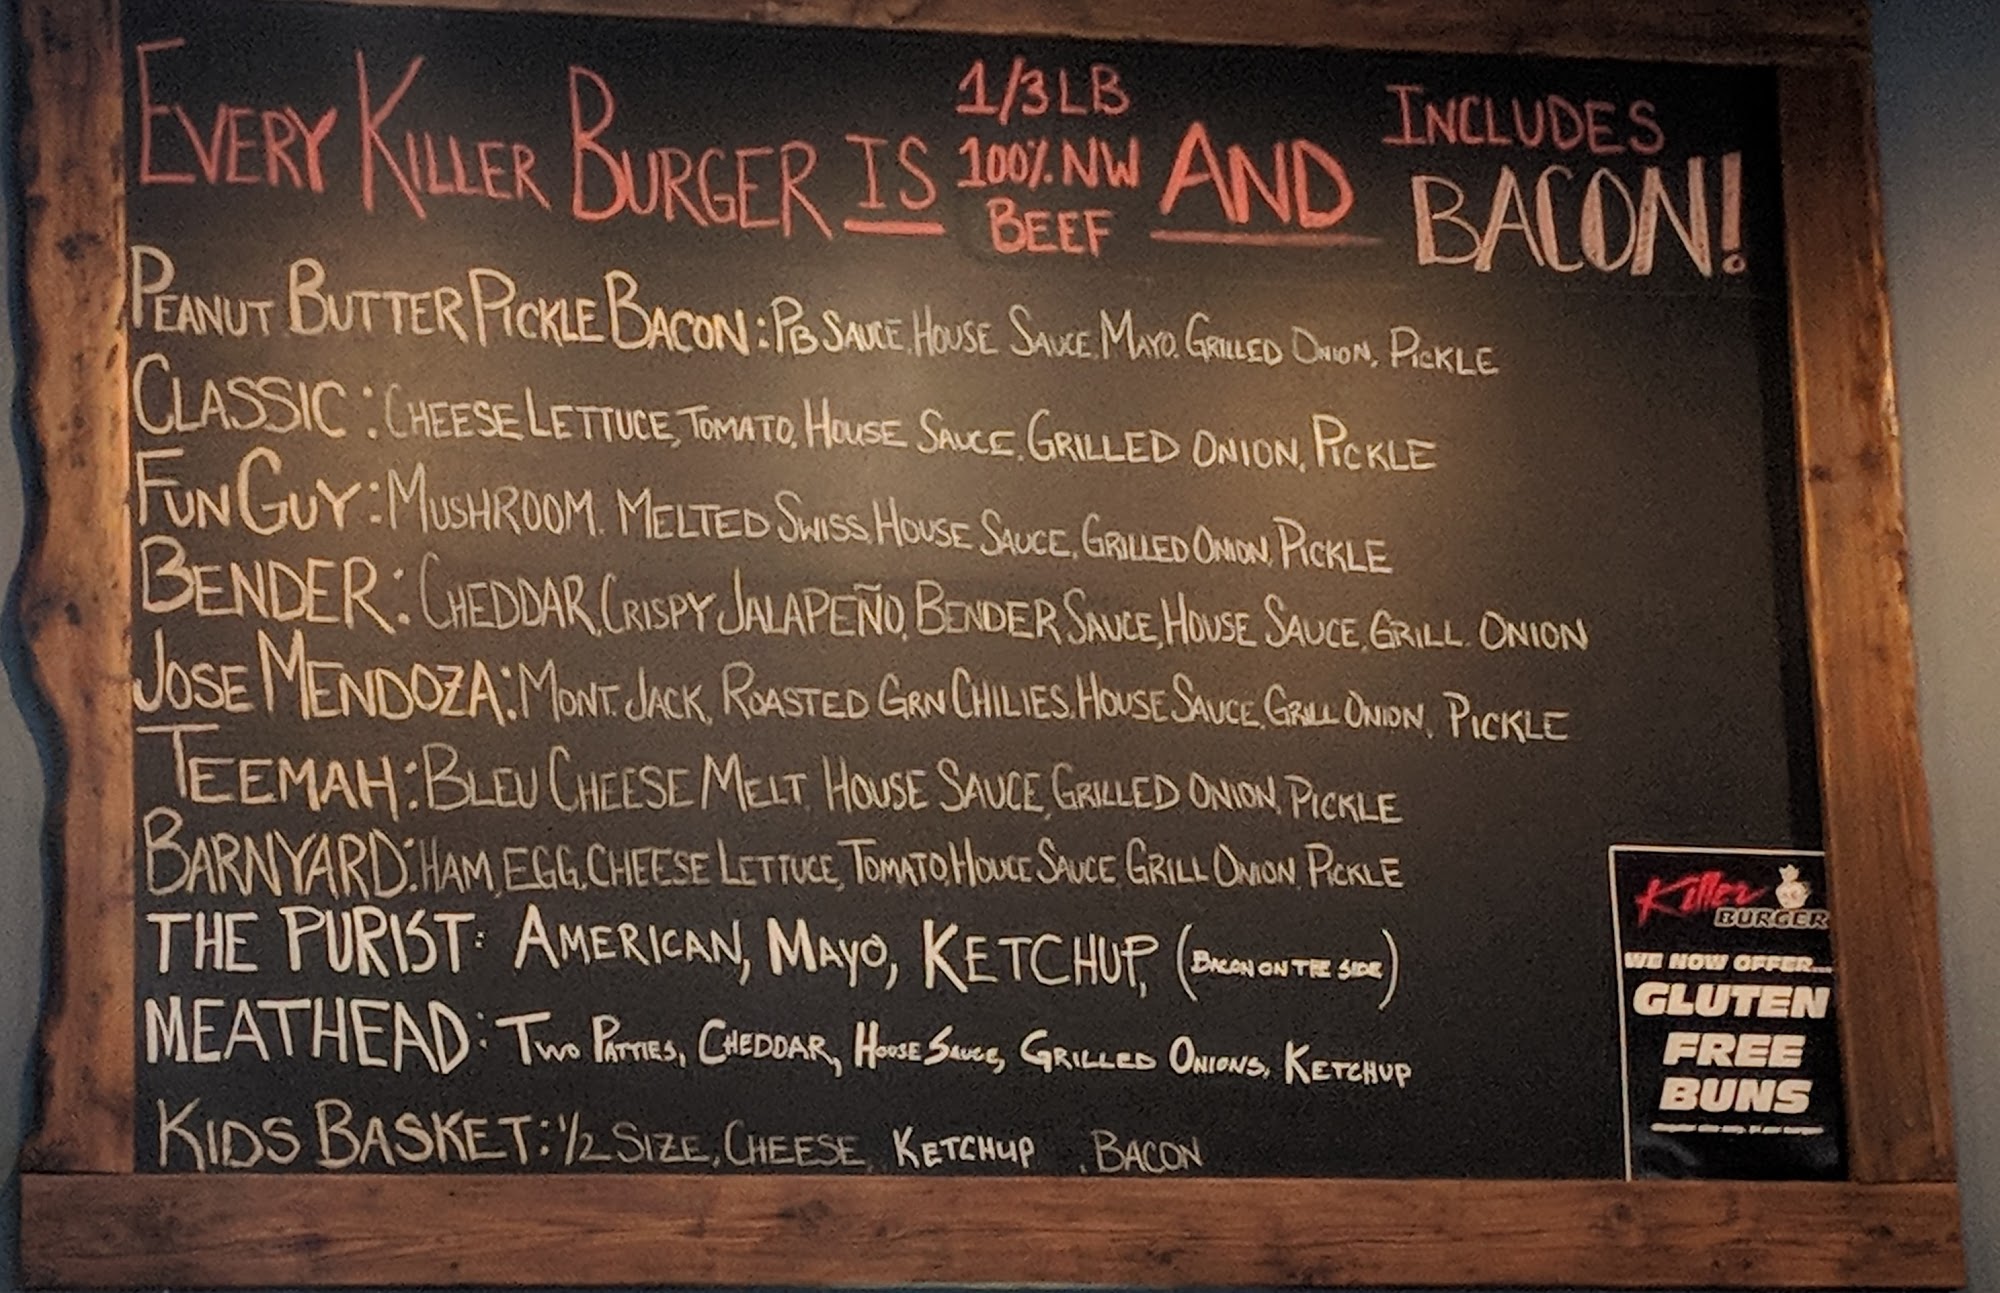 EVERY KILLER BURGER IS 1/3 LB 100% NW BEEF AND INCLUDES BACON!
PEANUT BUTTER PICKLE BACON: PB SAUCE, HOUSE SAUCE, MAYO, GRILLED ONION, PICKLE
CLASSIC: CHEESE LETTUCE, TOMATO, HOUSE SAUCE, GRILLED ONION, PICKLE
FUN GUY: MUSHROOM, MELTED SWISS, HOUSE SAUCE, GRILLED ONION, PICKLE
BENDER: CHEDDAR, CRISPY JALAPEÑO, BENDER SAUCE, HOUSE SAUCE, GRILL ONION
JOSE MENDOZA: MONT. JACK, ROASTED GRN CHILIES, HOUSE SAUCE, GRILL ONION, PICKLE
TEEMAH: BLEU CHEESE MELT, HOUSE SAUCE, GRILLED ONION, PICKLE
BARNYARD: HAM, EGG, CHEESE LETTUCE, TOMATO, HOUCE SAUCE, GRILL ONION, PICKLE
THE PURIST: AMERICAN, MAYO, KETCHUP, (BACON ON THE SIDE)
MEATHEAD: TWO PATTIES, CHEDDAR, HOUSE SAUCE, GRILLED ONIONS, KETCHUP
KIDS BASKET: 1/2 SIZE, CHEESE, KETCHUP, BACON
Killer
BURGER
WE NOW OFFER...
GLUTEN
FREE
BUNS